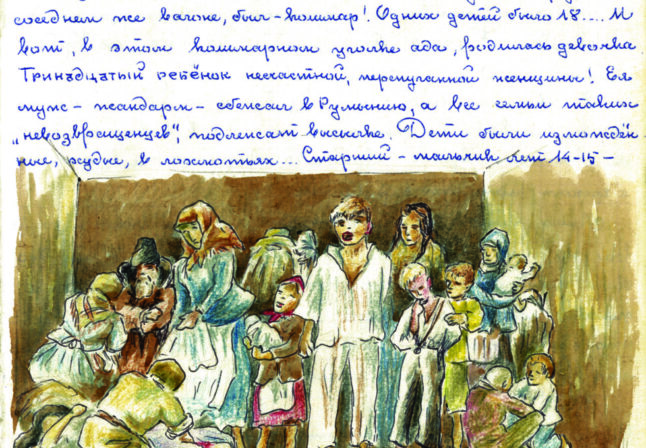 соседнем же вагоне, был - кошмар! Одних детей было 18.... И
вот, в этом кошмарном уголке ада, родилась девочка
Тринадцатый ребёнок несчастной, перепуганной женщины! Ея
муж - жандарм - сбежал в Румынию, а все семьи таких
„невозвращенцев", подлежат высылке. Дети были измождён
ные, худые, в лохмотьях... Старший - мальчик лет 14-15 -